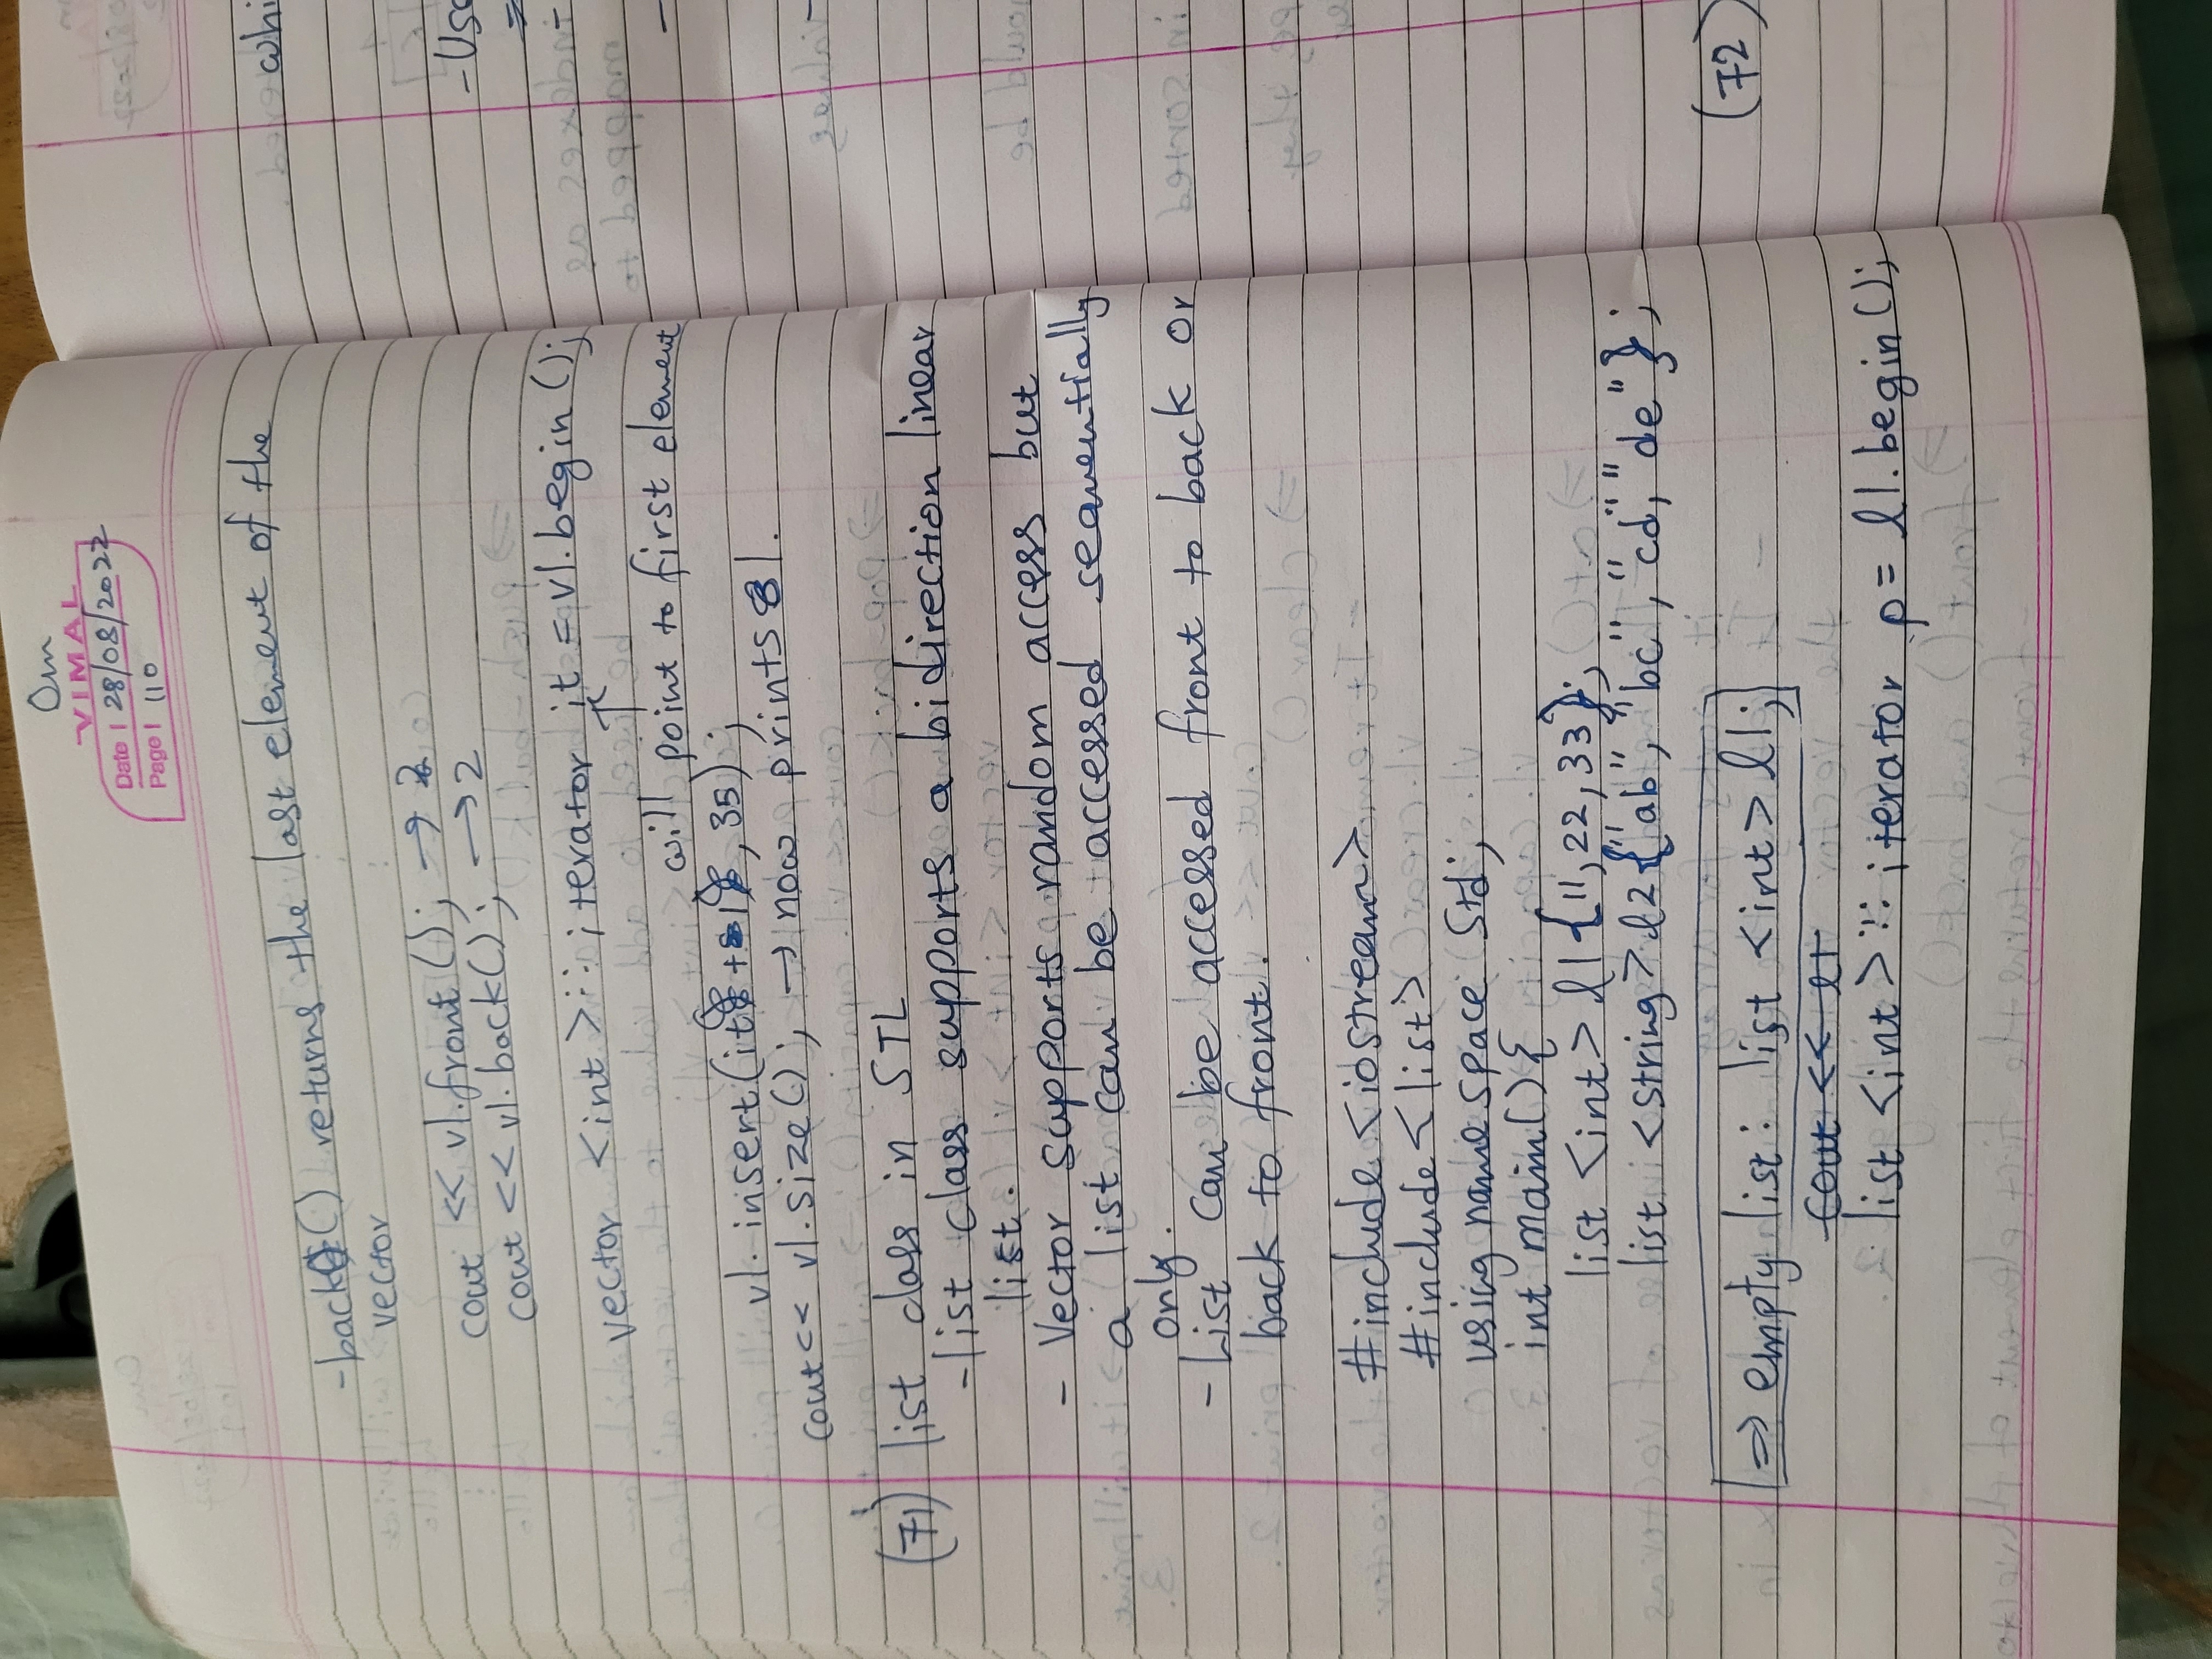 Om
VIMAL
Date | 28/08/2022
Page | 110
- back() returns the last element of the
vector
cout << v1.front(); → 2
cout << v1.back(); → 2
vector <int> :: iterator it = v1.begin();
will point to first element
v1.insert(it + 1, 35);
cout << v1.size(); → now prints 1.
(71) list class in STL
- list class supports a bidirection linear
list.
- Vector supports random access but
a list can be accessed sequentially
only.
- List can be accessed front to back or
back to front.
#include <iostream>
#include <list>
using namespace std;
int main(){
list <int> l1{11,22,33};
list <string> l2{"ab", "bc", "cd", "de"};
⇒ empty list: list <int> l1;
cout << l1
list <int> :: iterator p = l1.begin();
whi
- Use
(72)